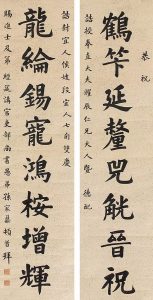 恭祝
鶴筭延釐兕觥晉祝
誥授奉直大夫耀辰仁兄大人暨 德配
誥封宜人 宜人七旬雙慶
綸錫寵鴻桉增輝
賜進士及第 經筵講官吏部尚書愚弟孫家鼐頓首拜